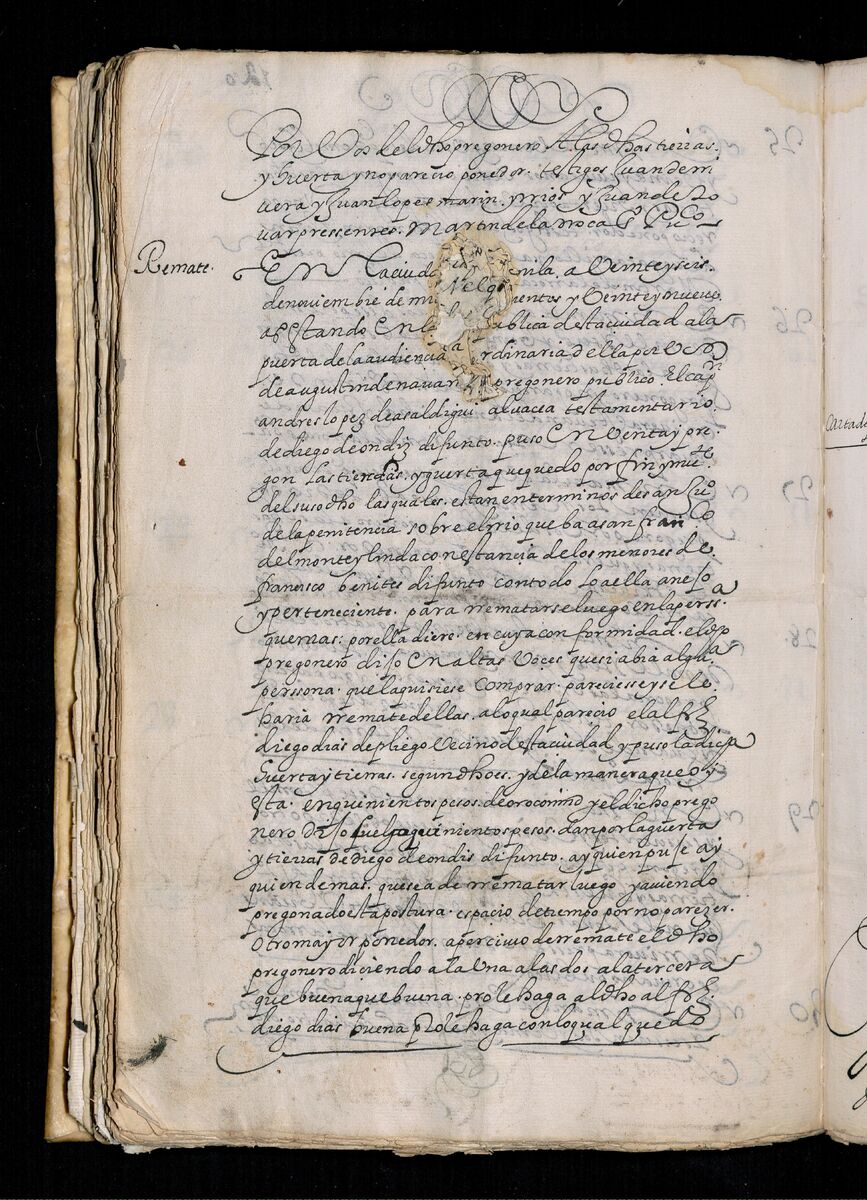 Por Vos del dho pregonero A las dhas tierras.
y guerta y no parecio ponedor. testigos Juan de rri
vera y Juan lopes marin. y rrios y Juan de to
var pressentes. Martin de la rroca Es Puco
Remate.
EN La ciud nila, a Veinte y seis.
de noviembre de mi ientos y Veinte y nueve
as Estando En la ublica desta ciudad a la
puerta de la audiencia ordinaria della por Vos
de augustin de navar pregonero publico. El capn
andres lopez de asaldigui alvacea testamentario.
de diego de ondiz difunto. puso En Venta y pre.
gon Las tierras. y guerta que quedo por fin y mute
del susodho las quales. estan en terminos de san Juo
de la penitencia sobre el rrio que ba a san franco
del monte y linda con estancia de los menores de
francisco benites difunto con todo Lo a ella anejo
y perteneciente. para rrematarse luego en la perssa.
que mas: por ella diere. en cuya conformidad. el dho
pregonero dijo En altas Voces que si abia alguna
perssona. que la quisiese Comprar. pareciesse y se le
haria rremate dellas. a lo qual parecio el alfrz
diego dias de pliego Vecino desta ciudad y puso la dicha
guerta y tierras. segun dho es. y de la manera que oy
esta. en quinientos pesos. de oro comun y el dicho prego
nero dijo quinientos pesos. dan por la guerta
y tierras de diego de ondis difunto. ay quien puje ay
quien de mas. que se a de rrematar luego y aviendo
pregonado esta postura. espacio de tiempo por no parezer.
otro mayor ponedor. apercivio de rremate el dho
pregonero diciendo a la Una a las dos a la tercera
que buena que buena. pro le haga al dho alfrz.
diego dias buena pro le haga con lo qual quedo